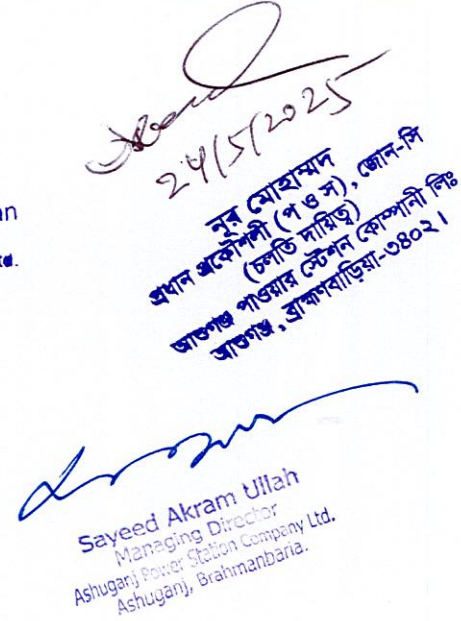 24/5/2025
an
td.
নূর মোহাম্মদ
প্রধান প্রকৌশলী (প ও স), জোন-সি
(চলতি দায়িত্ব)
আশুগঞ্জ পাওয়ার স্টেশন কোম্পানী লিঃ
আশুগঞ্জ, ব্রাহ্মণবাড়িয়া-৩৪০২।
Sayeed Akram Ullah
Managing Director
Ashuganj Power Station Company Ltd.
Ashuganj, Brahmanbaria.